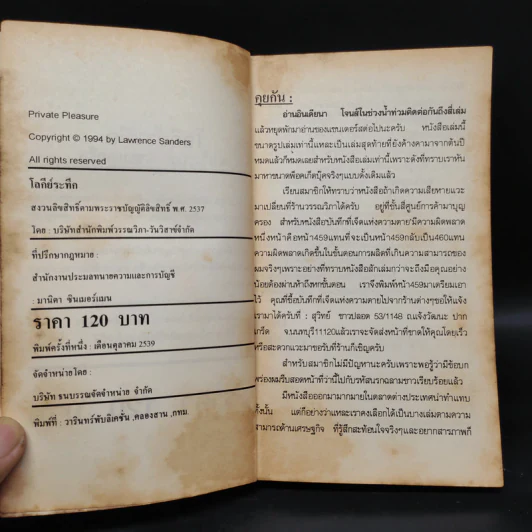 Private Pleasure
Copyright © 1994 by Lawrence Sanders
All rights reserved
โลกีย์ระทึก
สงวนลิขสิทธิ์ตามพระราชบัญญัติลิขสิทธิ์ พ.ศ. 2537
โดย : บริษัทสำนักพิมพ์วรรณวิภา-วันวิสาข์จำกัด
ที่ปรึกษากฎหมาย :
สำนักงานประมวลทนายความและการบัญชี
มานิดา ซินเมอร์แมน
ราคา 120 บาท
พิมพ์ครั้งที่หนึ่ง : เดือนตุลาคม 2539
จัดจำหน่ายโดย :
บริษัท ธนบรรณจัดจำหน่าย จำกัด
พิมพ์ที่ : วารินทร์พับลิเคชั่น ,คลองสาน ,กทม.
คุยกัน :
อ่านอินเดียนา โจนส์ในช่วงน้ำท่วมติดต่อกันถึงสี่เล่ม
แล้วหยุดพักมาอ่านของแซนเดอร์สต่อไปนะครับ หนังสือเล่มนี้
ขนาดรูปเล่มเท่านี้แหละเป็นเล่มสุดท้ายที่ยังค้างคามาจากต้นปี
หมดแล้วก็หมดเลยสำหรับหนังสือเล่มเท่านี้เพราะดังที่ทราบเราหัน
มาทำขนาดพ็อคเก็ตบุ๊คจริงๆแบบดั้งเดิมแล้ว
เรียนสมาชิกให้ทราบว่าหนังสือถ้าเกิดความเสียหายแวะ
มาเปลี่ยนที่ร้านวรรณวิภาได้ครับ อยู่ที่ชั้นสี่ศูนย์การค้ามาบุญ
ครอง สำหรับหนังสือบันทึกที่เจ็ดแห่งความตายมีความผิดพลาด
หนึ่งหน้าคือหน้า459แทนที่จะเป็นหน้า459กลับเป็น460แทน
ความผิดพลาดเกิดขึ้นในขั้นตอนการผลิตที่เกินความสามารถของ
ผมจริงๆเพราะอย่างที่ทราบหนังสือสักเล่มกว่าจะถึงมือคุณอย่าง
น้อยต้องผ่านห้าถึงหกขั้นตอน เราจึงพิมพ์หน้า459มาเตรียมเอา
ไว้ คุณที่ซื้อบันทึกที่เจ็ดแห่งความตายไปจากร้านต่างๆขอให้แจ้ง
เรามาได้ครับที่ : สุวิทย์ ขาวปลอด 53/1148 ถ.แจ้งวัฒนะ ปาก
เกร็ด จ.นนทบุรี11120แล้วเราจะจัดส่งหน้าที่ขาดให้คุณโดยเร็ว
หรือสะดวกแวะมาขอรับที่ร้านก็เชิญครับ
สำหรับสมาชิกไม่มีปัญหานะครับเพราะพอรู้ว่ามีข้อบก
พร่องผมรีบสอดหน้าที่ว่านี้ไปกับรหัสนรกฉลามขาวเรียบร้อยแล้ว
มีหนังสือออกมามากมายในตลาดต่างประเทศน่าทำแทบ
ทั้งนั้น แต่ก็อย่างว่าแหละเราคงเลือกได้เป็นบางเล่มตามความ
สามารถด้านเศรษฐกิจ ที่รู้สึกสะท้อนใจจริงๆและอยากสารภาพก็